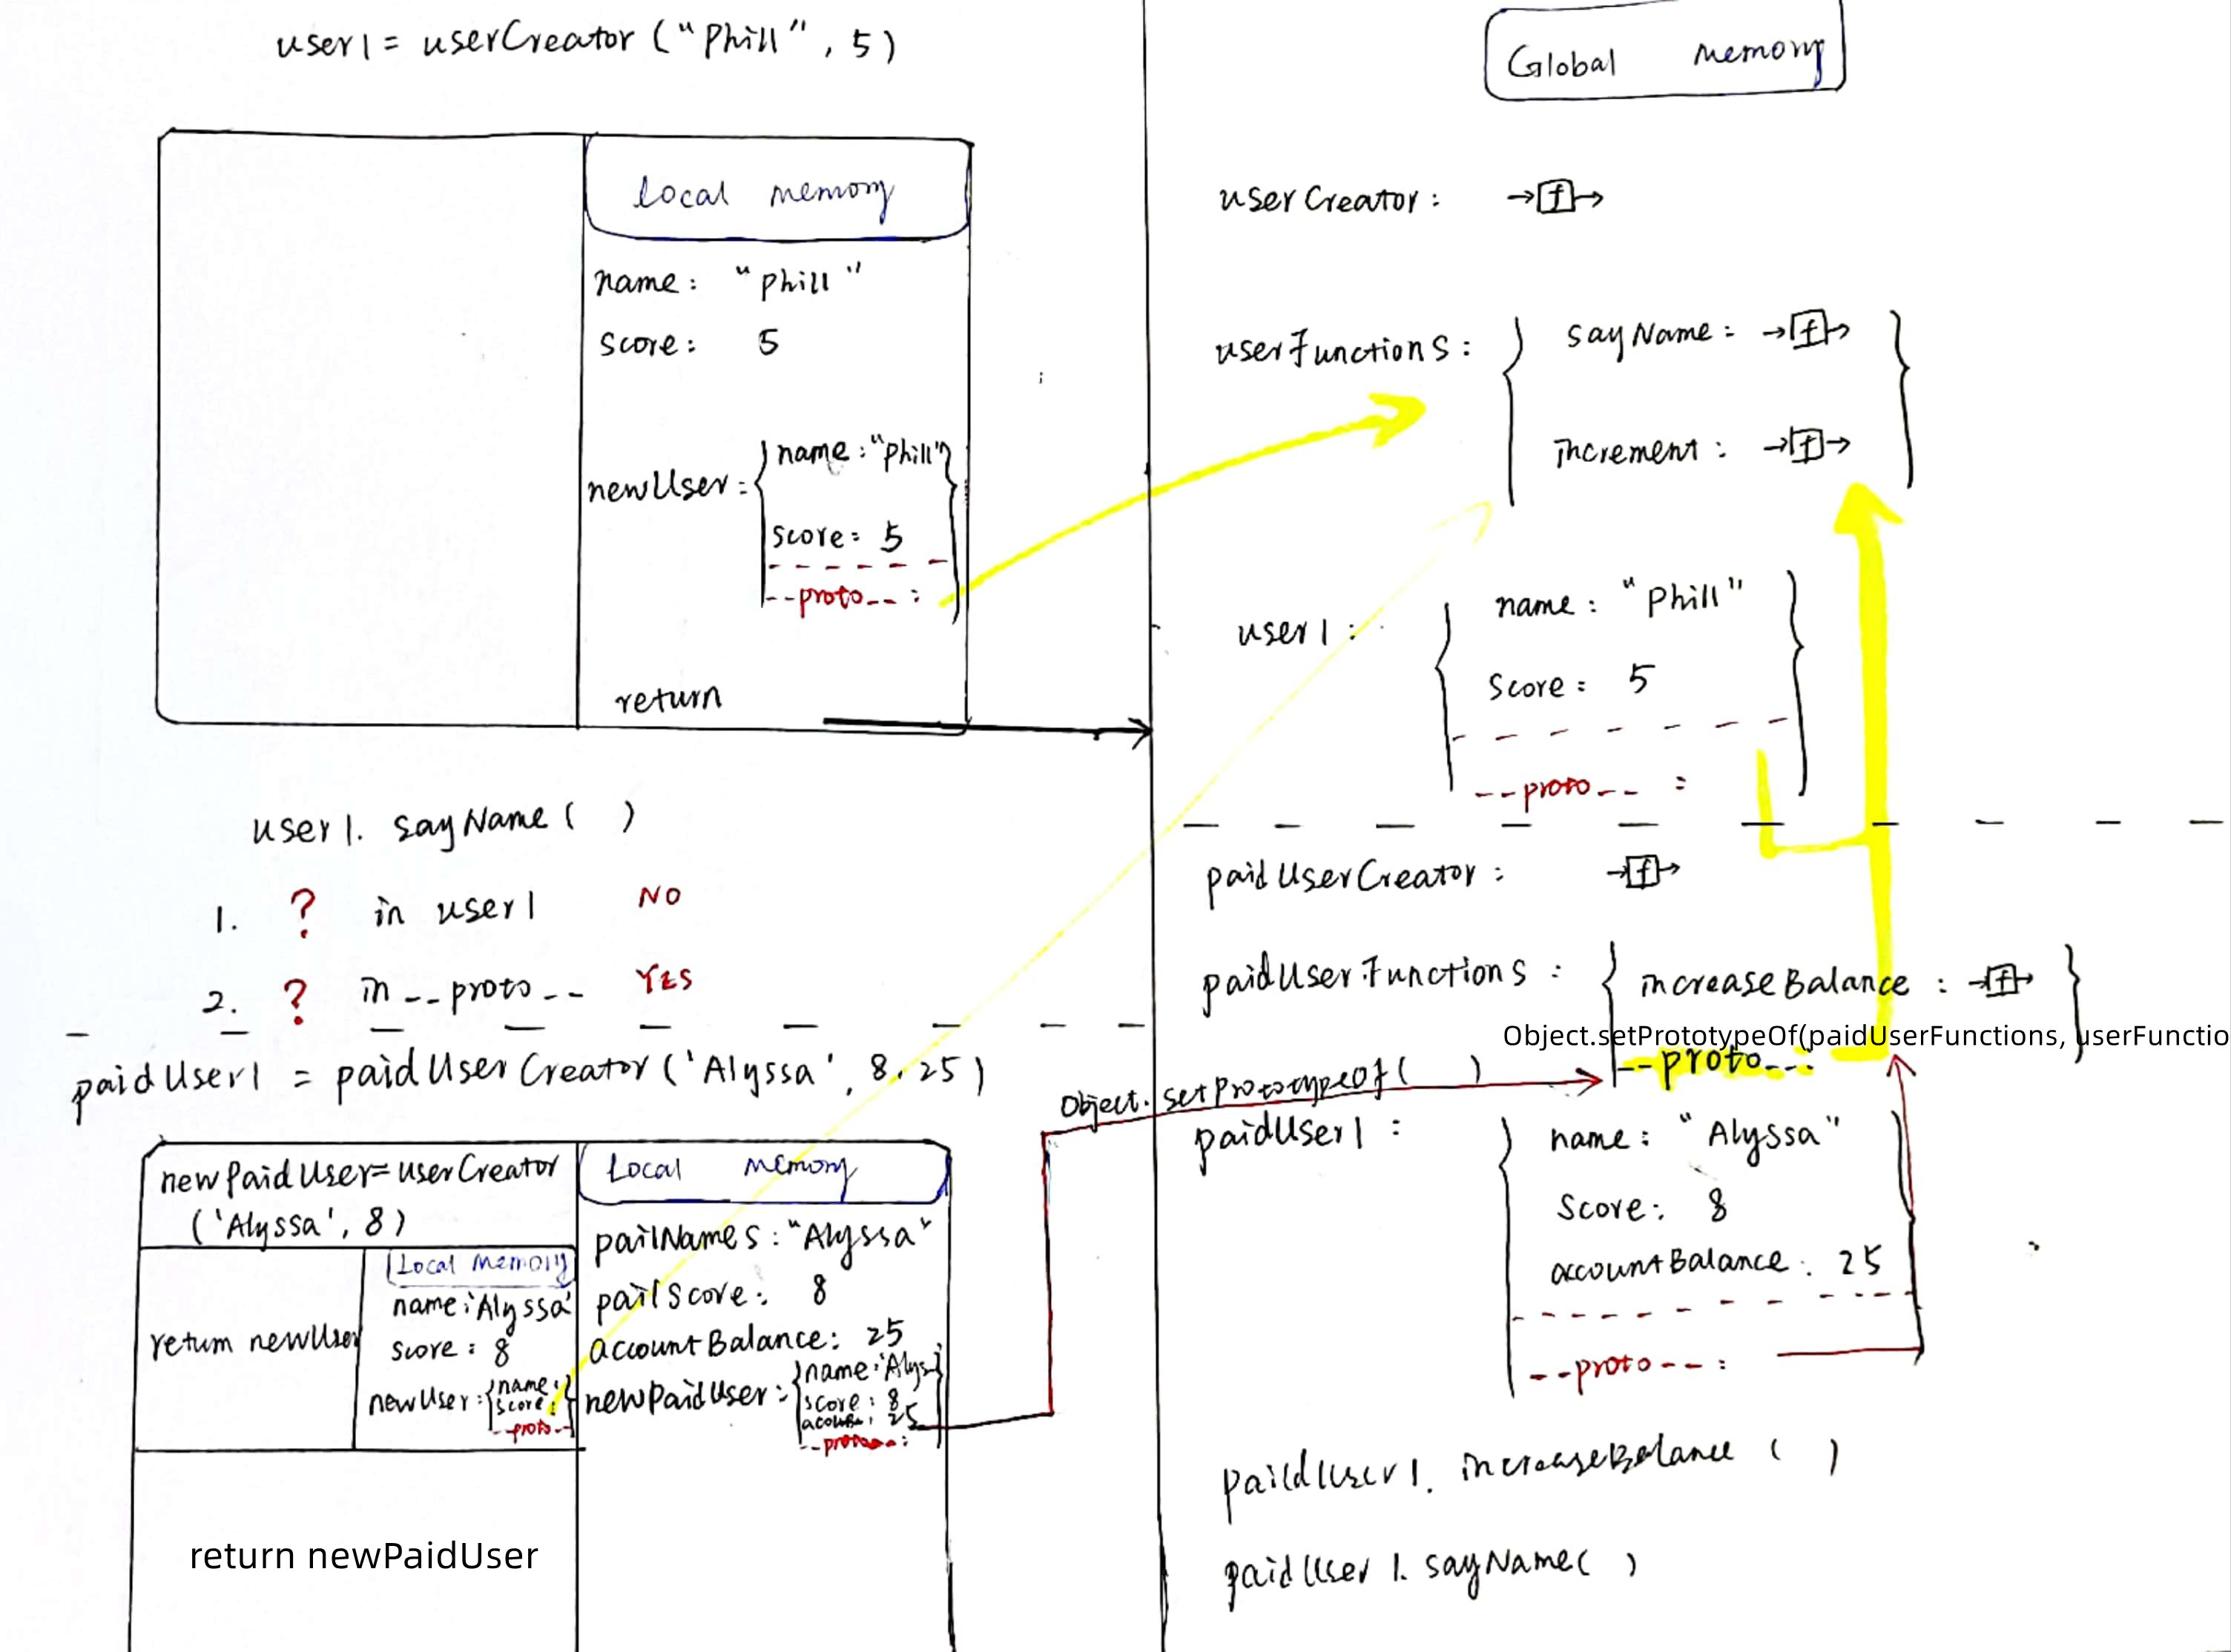 user1 = userCreator ("Phill", 5)
Local memory
name: "Phill"
score: 5
newUser: { name: "Phill"
score: 5
--proto--:
return
user1. sayName ( )
1. ? in user1 NO
2. ? in --proto-- YES
paidUser1 = paidUserCreator ('Alyssa', 8, 25)
newPaidUser=userCreator
('Alyssa', 8)
Local memory
name: 'Alyssa'
score: 8
return newUser
newUser: { name: }
score:
--proto--
return newPaidUser
Local memory
pailNames: "Alyssa"
pailScore: 8
accountBalance: 25
newPaidUser: { name: 'Alys }
score: 8
: 25
--proto--:
Object. setPrototypeOf ( )
Global memory
userCreator: →[f]→
userFunctions: { sayName: →[f]→ }
increment: →[f]→
user1: { name: "Phill" }
Score: 5
--proto-- :
paidUserCreator: →[f]→
paidUserFunctions: { increaseBalance: →[f]→ }
Object.setPrototypeOf(paidUserFunctions, userFunctio
--proto--:
paidUser1: { name: "Alyssa" }
Score: 8
accountBalance: 25
--proto--:
paidUser1. increaseBalance ( )
paidUser1. sayName( )